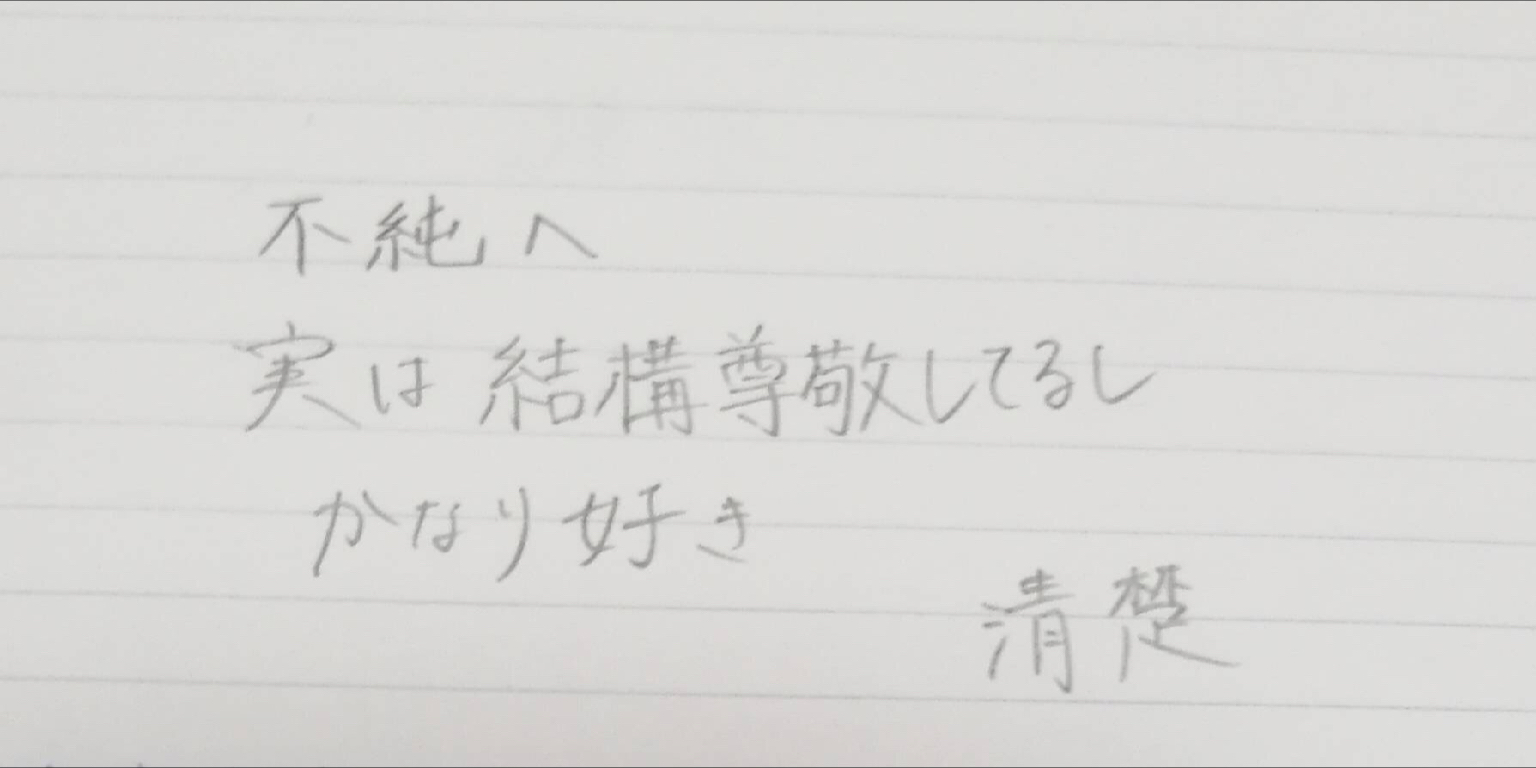 不純へ
実は結構尊敬してるし
かなり好き
清楚